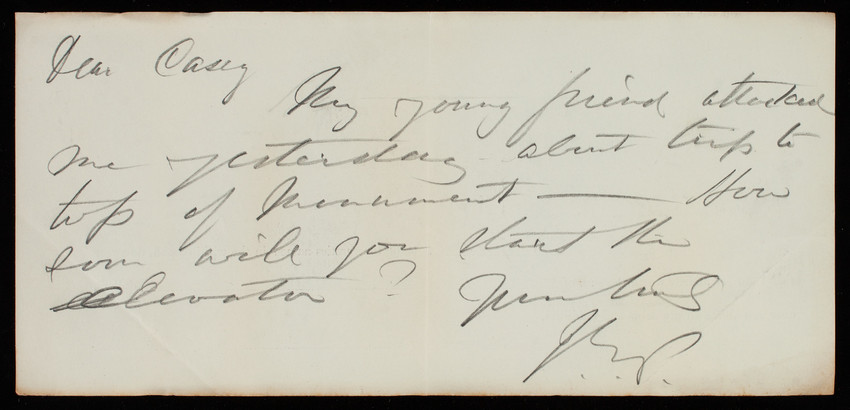 Dear Casey
My young friend attacked
me yesterday about trip to
top of Monument — How
soon will you start the
elevator?